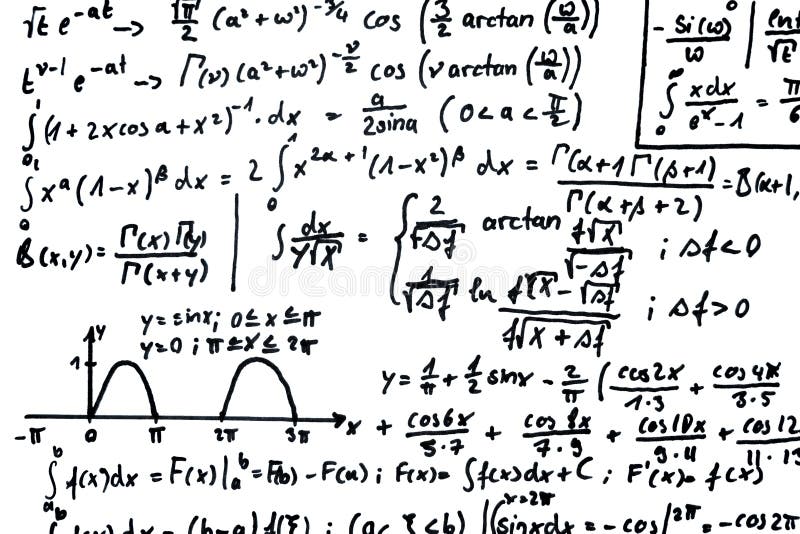 √t e^-at → √π/2 (a²+ω²)^-3/4 cos (3/2 arctan (ω/a))
t^ν-1 e^-at → Γ(ν) (a²+ω²)^-ν/2 cos (ν arctan (ω/a))
- Si(ω)/ω
∫₀^∞ xdx/e^x-1 = π
∫₀^1 (1+2x cos a+x²)^-1 · dx = a/2sina (0<a<π/2)
∫₀^1 x^a (1-x)^β dx = 2 ∫₀^1 x^2α+1 (1-x²)^β dx = Γ(α+1 Γ(β+1)/Γ(α+β+2) = B(α+1,
B(x,y) = Γ(x) Γ(y)/Γ(x+y)
∫ dx/y√x = { 2/√-Δf arctan f√x/√-Δf ; Δf<0
1/√Δf ln f√x-√Δf/f√x+Δf ; Δf>0
y=sinx; 0≤x≤π
y=0 ; π≤x≤2π
y
1
-π 0 π 2π 3π x
y = 1/π + 1/2 sinx - 2/π (cos2x/1·3 + cos4x/3·5
+ cos6x/5·7 + cos8x/7·9 + cos10x/9·11 + cos12/11·13
∫ₐ^b f(x)dx = F(x)|ₐ^b = F(b) - F(a) ; F(x)= ∫f(x)dx+C ; F'(x)= f(x)
dx = (b-a) f(ξ) ; (a< ξ <b) |∫sinxdx = -cos|^2π = -cos2π
x=2π
dreamstime